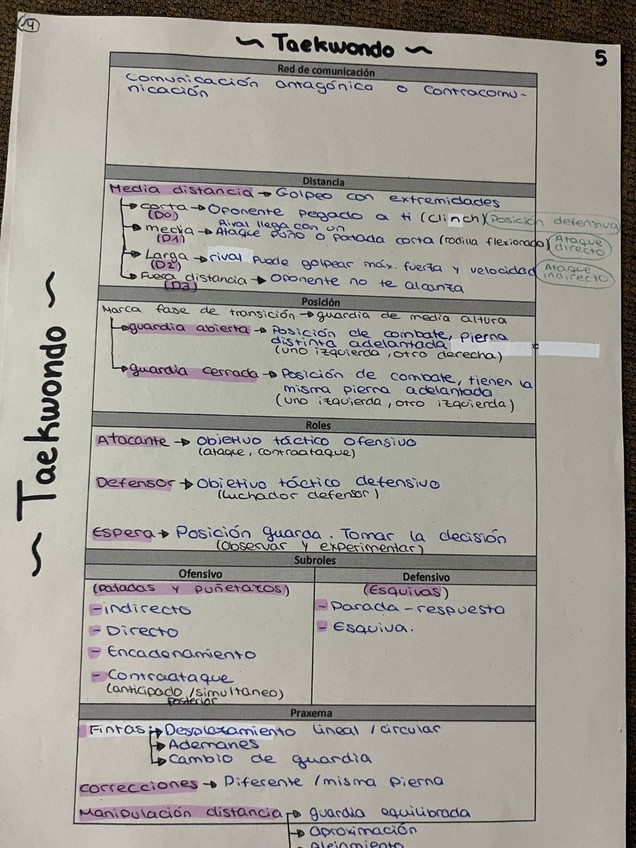 14
~ Taekwondo ~
5
~ Taekwondo ~
Red de comunicación
Comunicación antagónica o contracomu-
nicación
Distancia
Media distancia → Golpeo con extremidades
corta → Oponente pegado a ti (clinch) Posición defensiva
(D0)
Rival llega con un
media → Ataque puño o patada corta (rodilla flexionada) Ataque directo
(D1)
Larga → rival puede golpear máx. fuerza y velocidad Ataque indirecto
(D2)
Fuera distancia → Oponente no te alcanza
(D3)
Posición
Marca fase de transición → guardia de media altura
guardia abierta → Posición de combate, pierna
distinta adelantada
(uno izquierda, otro derecha)
guardia cerrada → Posición de combate, tienen la
misma pierna adelantada
(uno izquierda, otro izquierda)
Roles
Atacante → Objetivo táctico ofensivo
(ataque, contraataque)
Defensor → Objetivo táctico defensivo
(Luchador defensor)
Espera → Posición guarda. Tomar la decisión
(observar y experimentar)
Subroles
Ofensivo
(patadas y puñetazos)
- indirecto
- Directo
- Encadenamiento
- Contraataque
(anticipado / simultáneo)
posterior
Defensivo
(Esquivas)
- Parada - respuesta
- Esquiva.
Praxema
Fintas → Desplazamiento lineal / circular
→ Ademanes
→ Cambio de guardia
correcciones → Diferente / misma pierna
Manipulación distancia → guardia equilibrada
→ Aproximación
Alejamiento